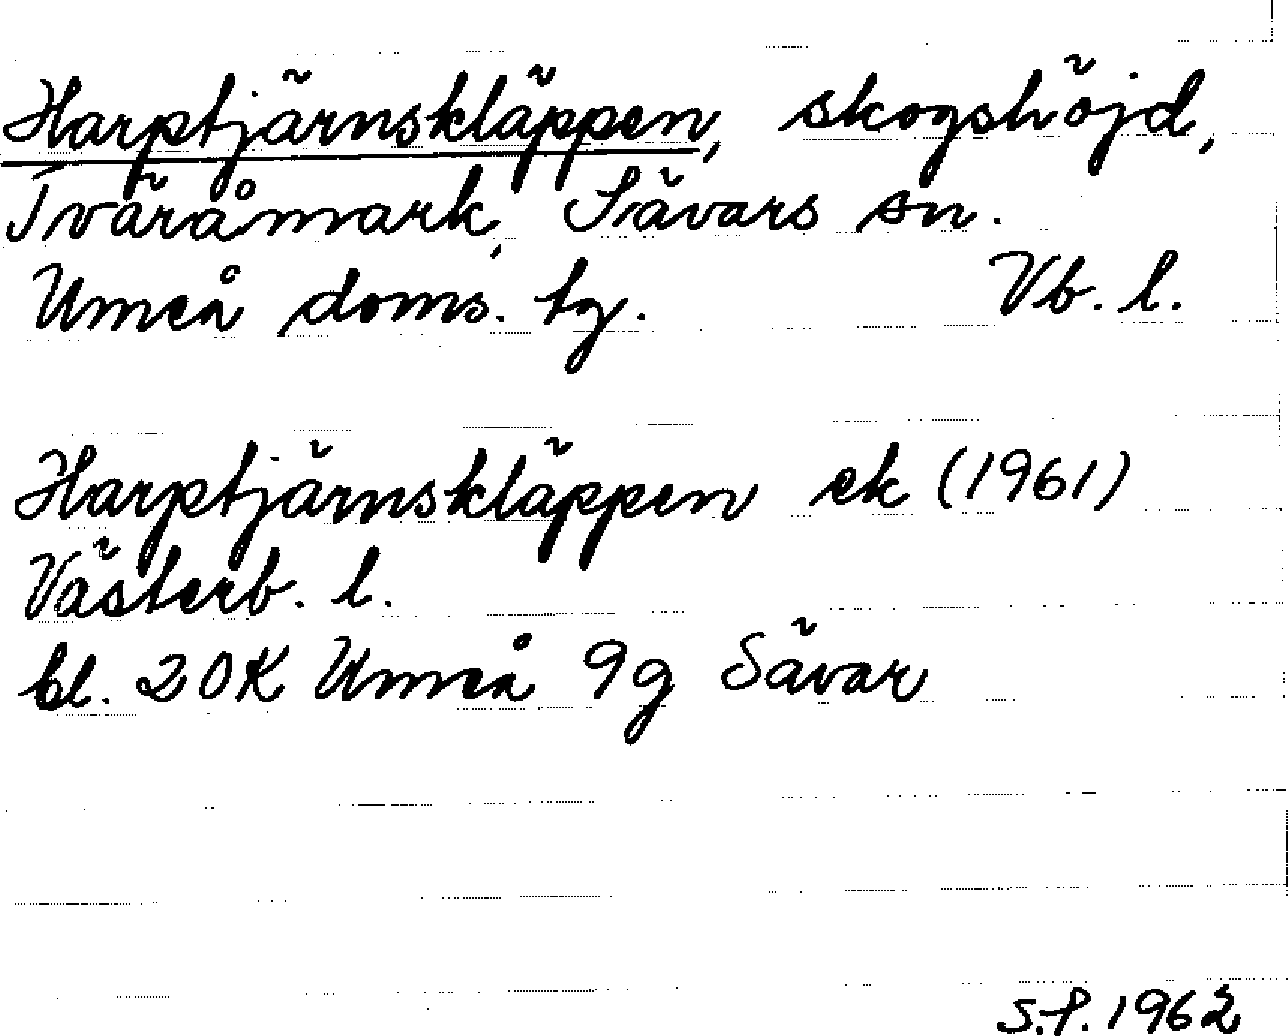 Harptjärnskläppen, skogshöjd,
Tväråmark, Sävars sn.
Umeå doms. tg. Vb. l.
Harptjärnskläppen ek (1961)
Västerb. l.
bl. 20K Umeå 9g Sävar
S.f. 1962